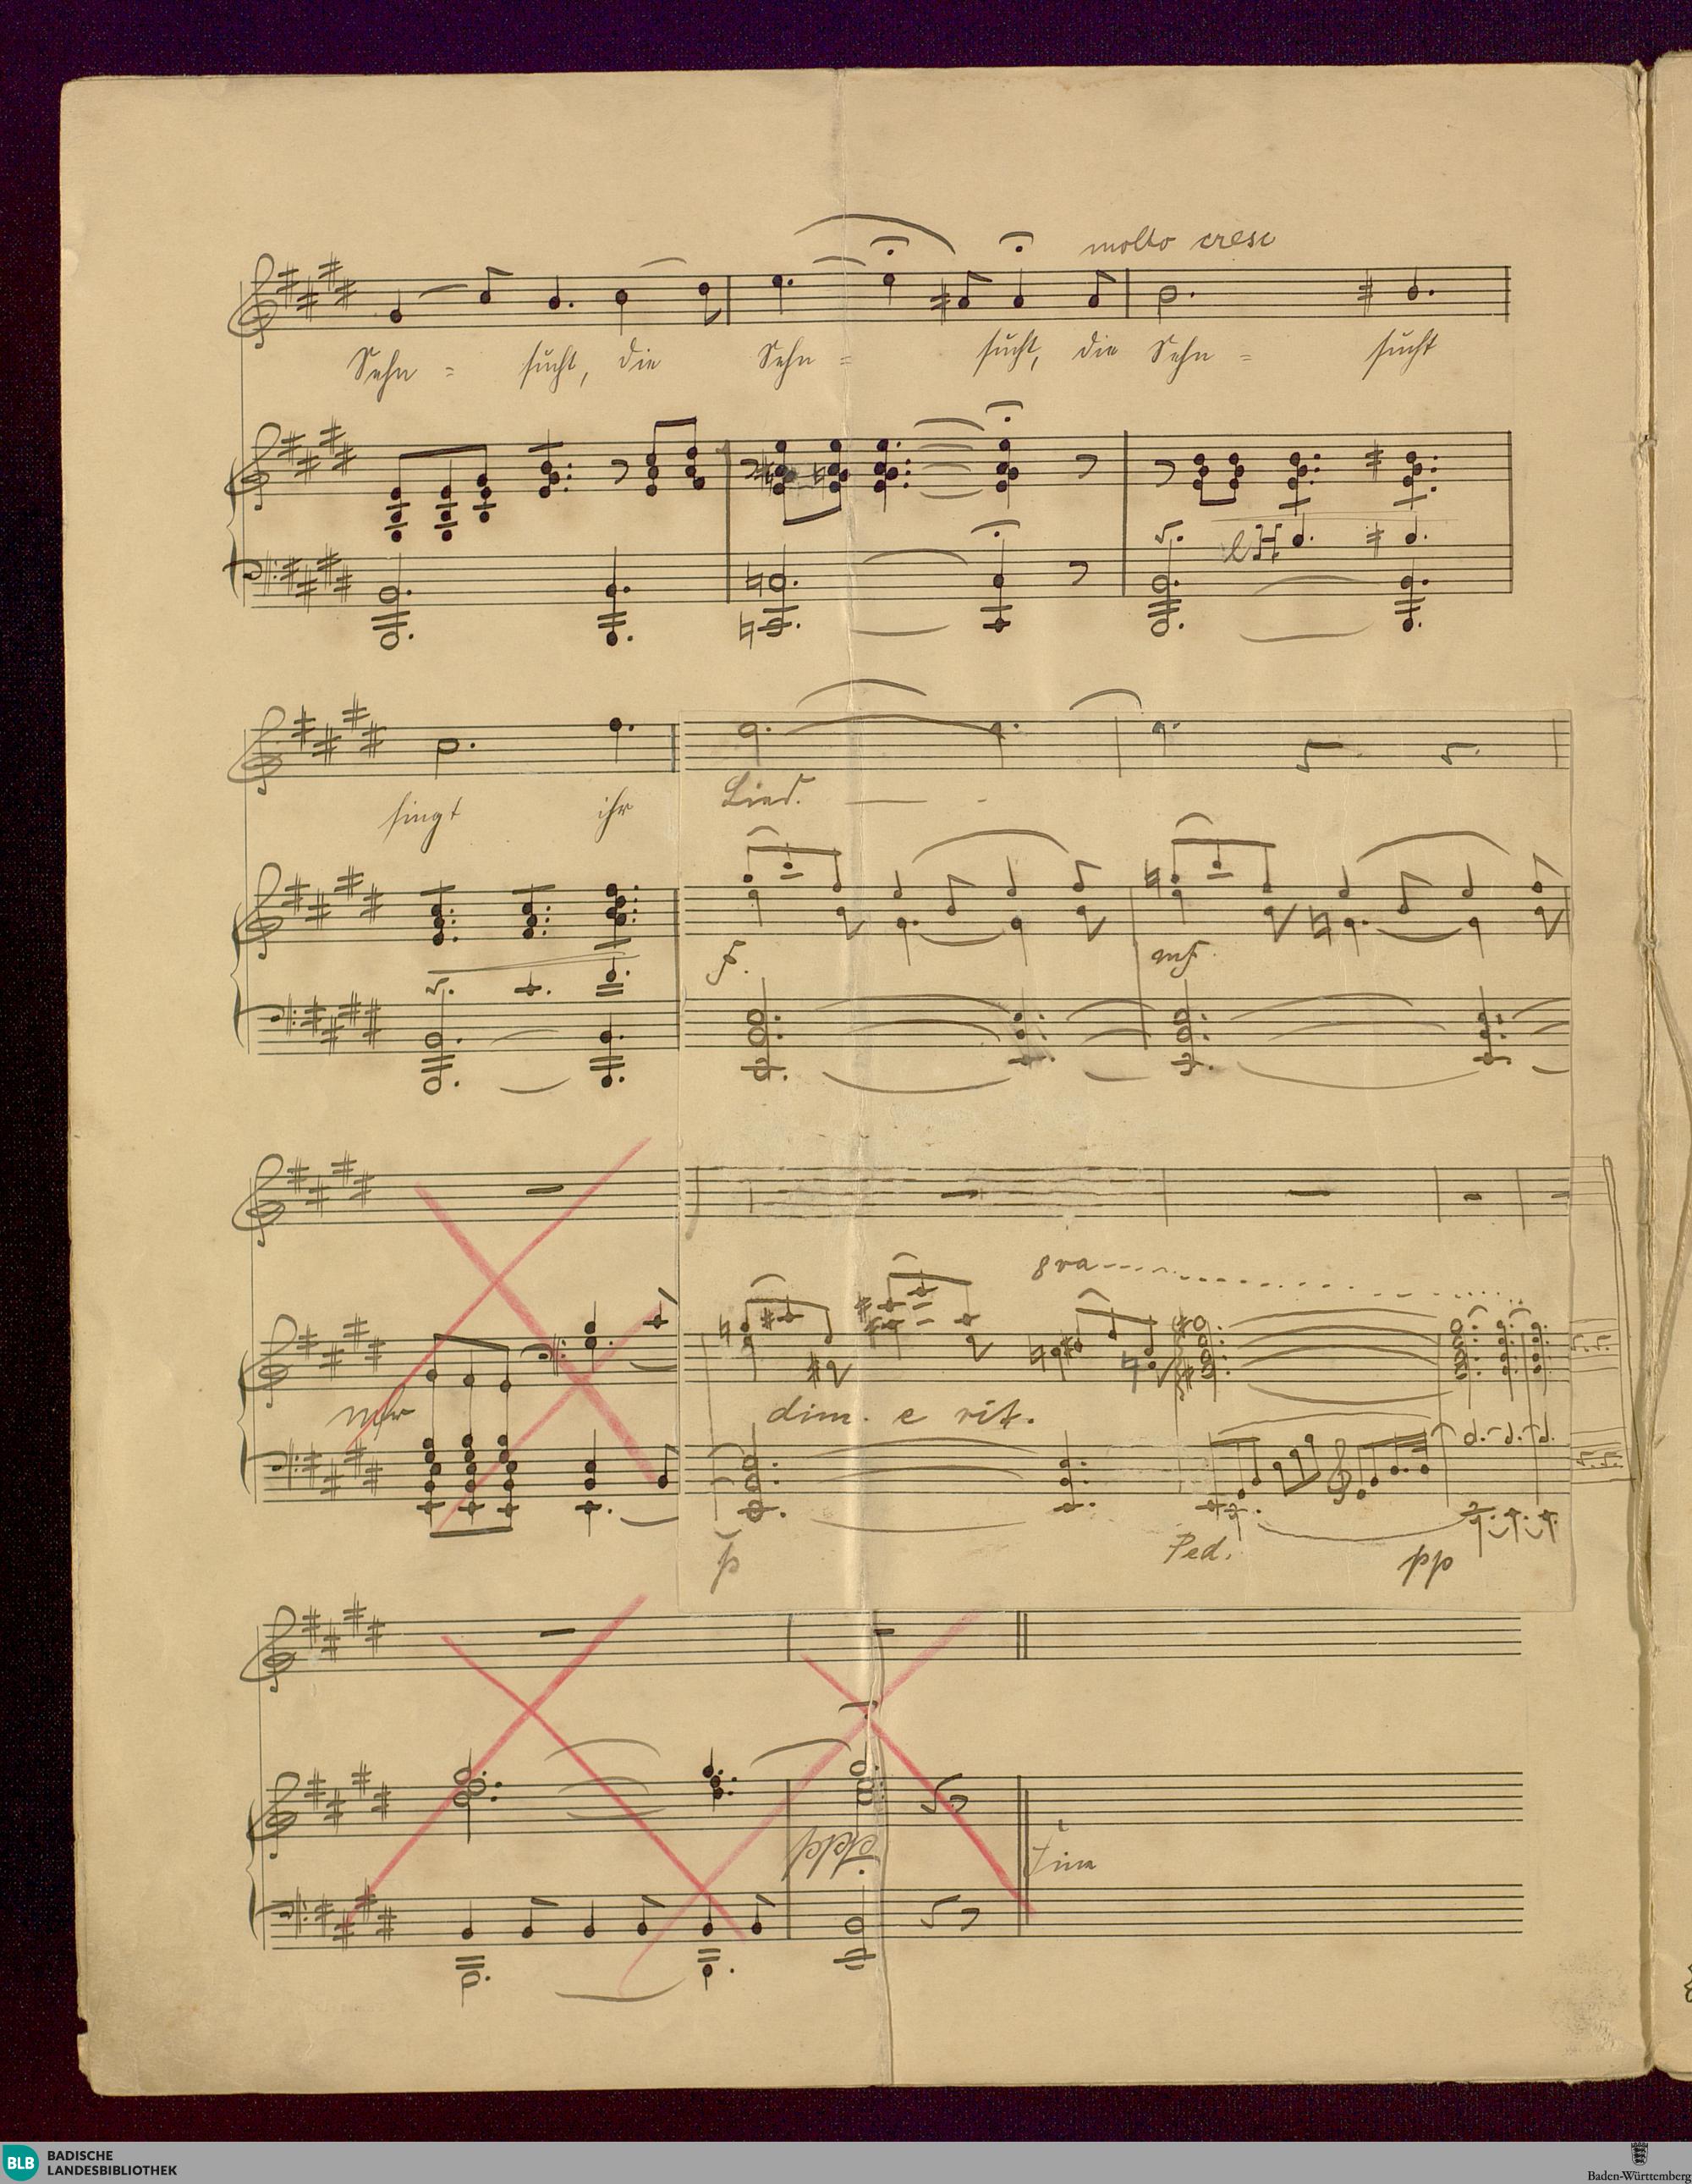 molto cresc
Sehn = sucht, die Sehn = sucht, die Sehn = sucht
lH
singt ihr Lied.
f. mf.
8va
dim. e rit.
p Ped. pp
Fine
BLB BADISCHE
LANDESBIBLIOTHEK
Baden-Württemberg